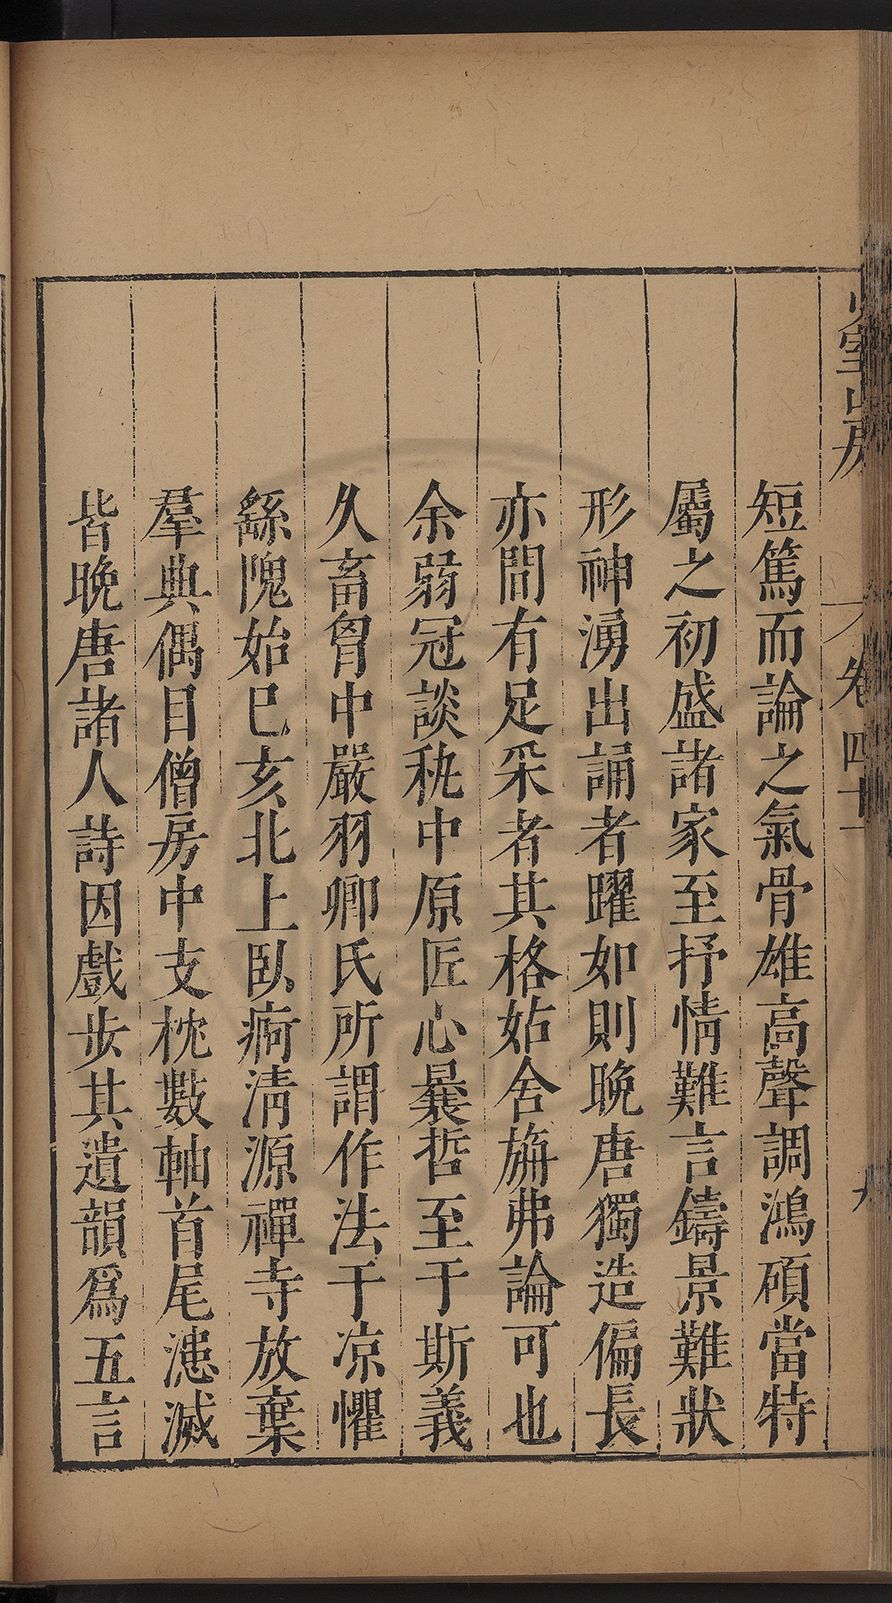 短篤而論之氣骨雄高聲調鴻碩當特
屬之初盛諸家至抒情難言鑄景難狀
形神湧出誦者躍如則晚唐獨造偏長
亦間有足采者其格姑舍旃弗論可也
余弱冠談秇中原匠心曩哲至于斯義
久畜胷中嚴羽卿氏所謂作法于凉懼
繇隗始巳亥北上臥痾淸源禪寺放棄
羣典偶目僧房中支枕數軸首尾漶滅
皆晚唐諸人詩因戲步其遺韻爲五言
室山房
卷四十一
九